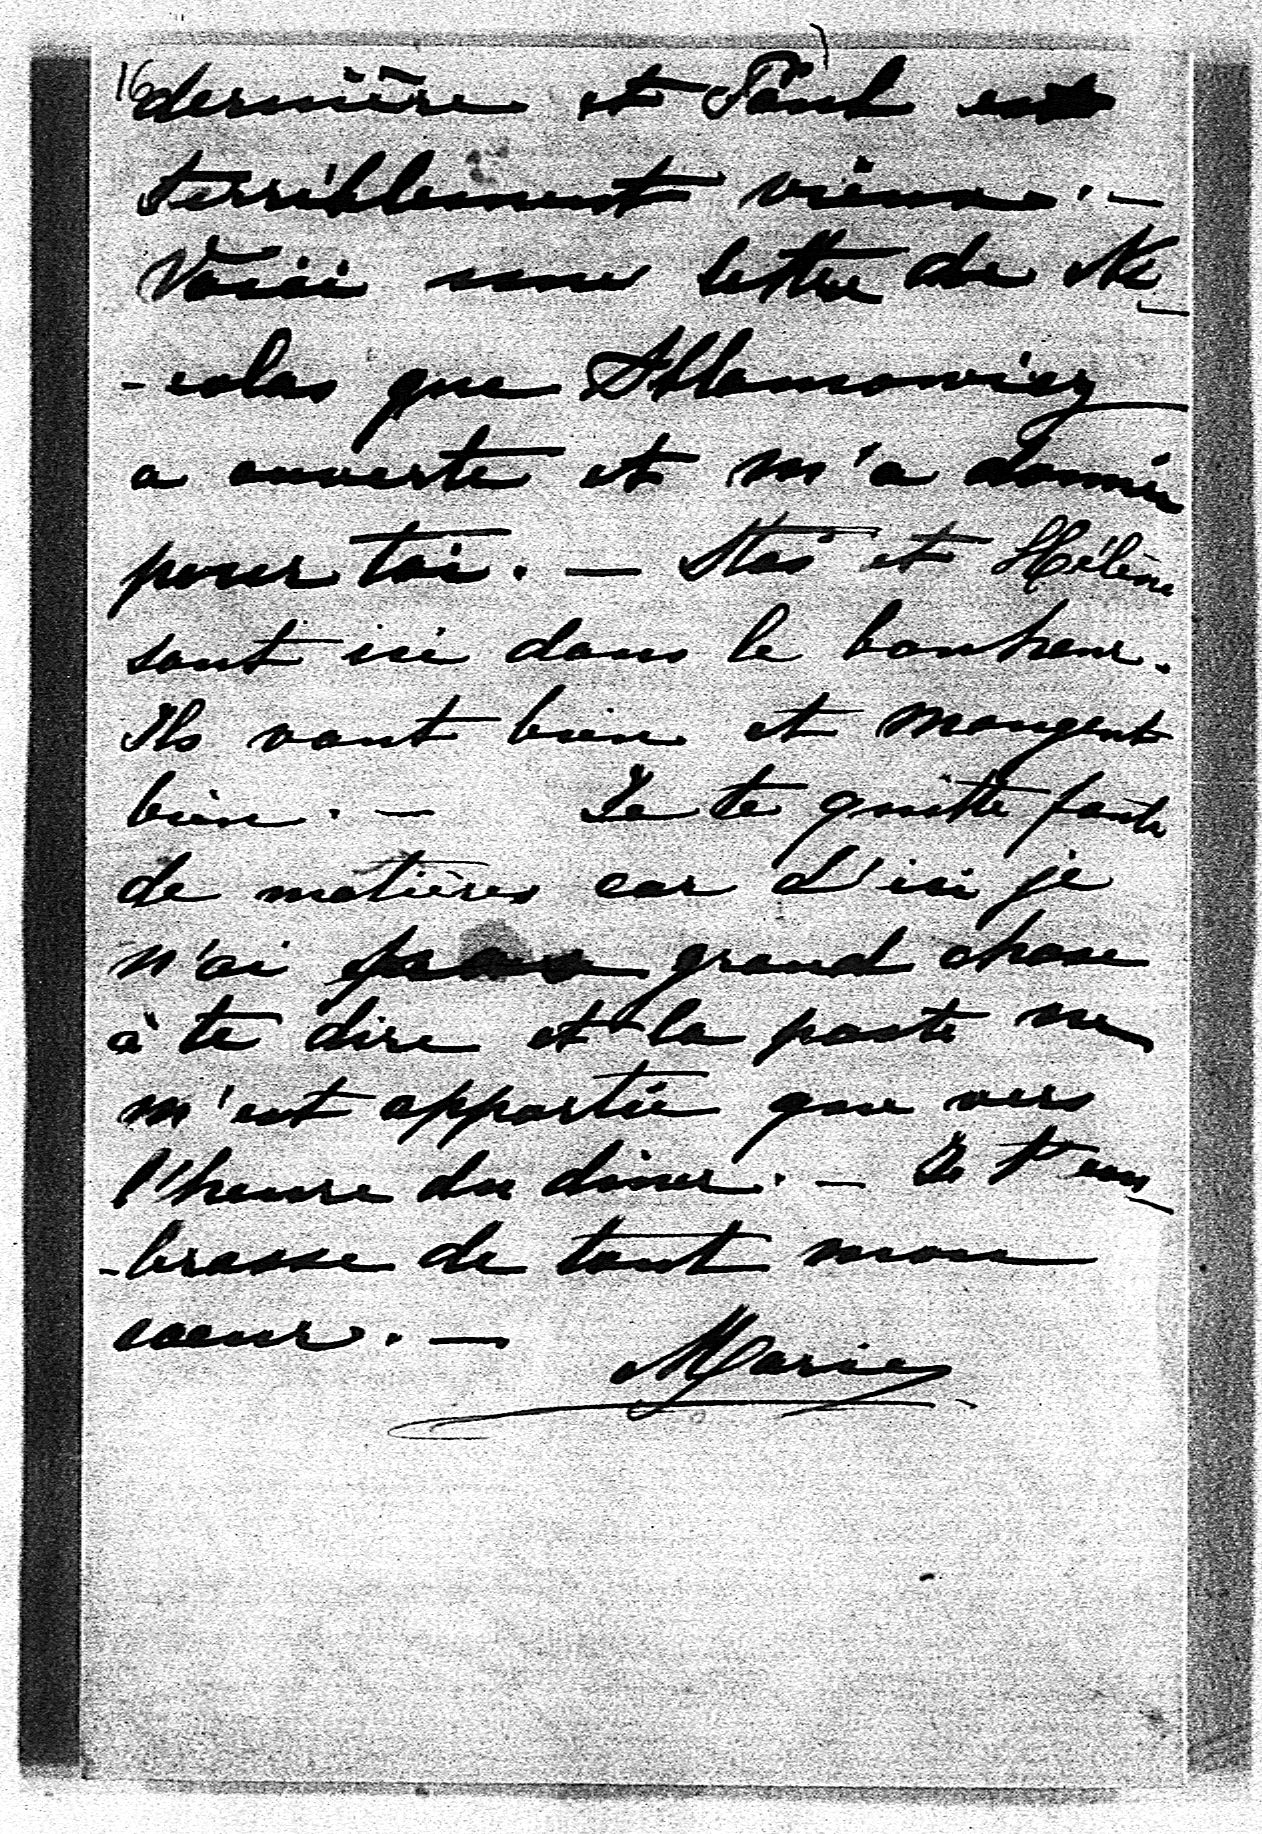 16
dernière et Paul est
terriblement vieux. —
Voici une lettre de Ni
-colas que Ablamowicz
a ouverte et m'a donnée
pour toi. — Stas et Hélène
sont ici dans le bonheur.
Ils vont bien et mangent
bien. — Je te quitte faute
de matières car d'ici je
n'ai pas grand chose
à te dire et la poste ne
m'est apportée que vers
l'heure du diner. — Je t'em
-brasse de tout mon
coeur. —
Marie